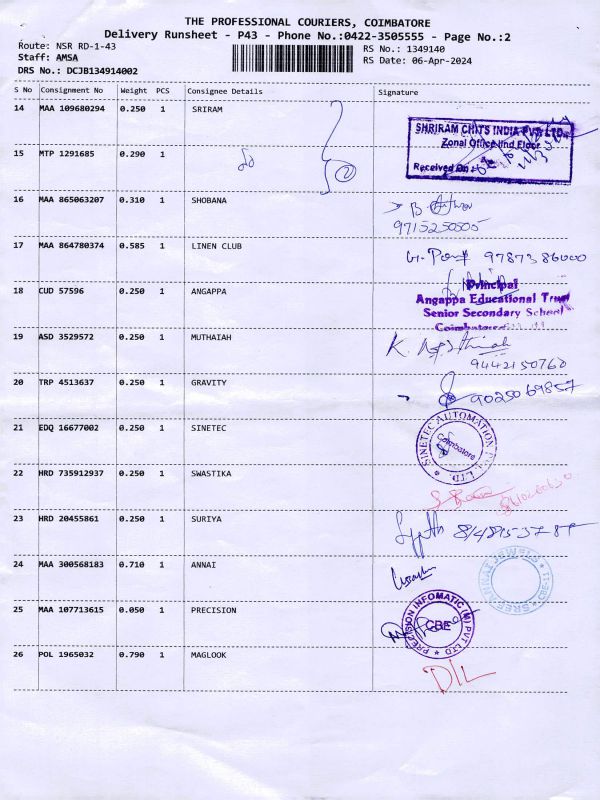 THE PROFESSIONAL COURIERS, COIMBATORE
Delivery Runsheet - P43 - Phone No.:0422-3505555 - Page No.:2
Route: NSR RD-1-43
RS No.: 1349140
Staff: AMSA
RS Date: 06-Apr-2024
DRS No.: DCJB134914002
S No Consignment No Weight PCS Consignee Details Signature
14 MAA 109680294 0.250 1 SRIRAM
SHRIRAM CHITS INDIA PVT LTD.
Zonal Office IInd Floor
Received On :
15 MTP 1291685 0.290 1
16 MAA 865063207 0.310 1 SHOBANA
9715250505
17 MAA 864780374 0.585 1 LINEN CLUB
9787386000
18 CUD 57596 0.250 1 ANGAPPA
Principal
Angappa Educational Trust
Senior Secondary School
Coimbatore
19 ASD 3529572 0.250 1 MUTHAIAH
9442150760
20 TRP 4513637 0.250 1 GRAVITY
9025069857
21 EDQ 16677002 0.250 1 SINETEC
SINETEC AUTOMATION PVT. LTD.
Coimbatore
22 HRD 735912937 0.250 1 SWASTIKA
23 HRD 20455861 0.250 1 SURIYA
24 MAA 300568183 0.710 1 ANNAI
SREE ANNAI JEWELS
25 MAA 107713615 0.050 1 PRECISION
PRECISION INFOMATIC (M) PVT LTD
CBE
26 POL 1965032 0.790 1 MAGLOOK
DIL